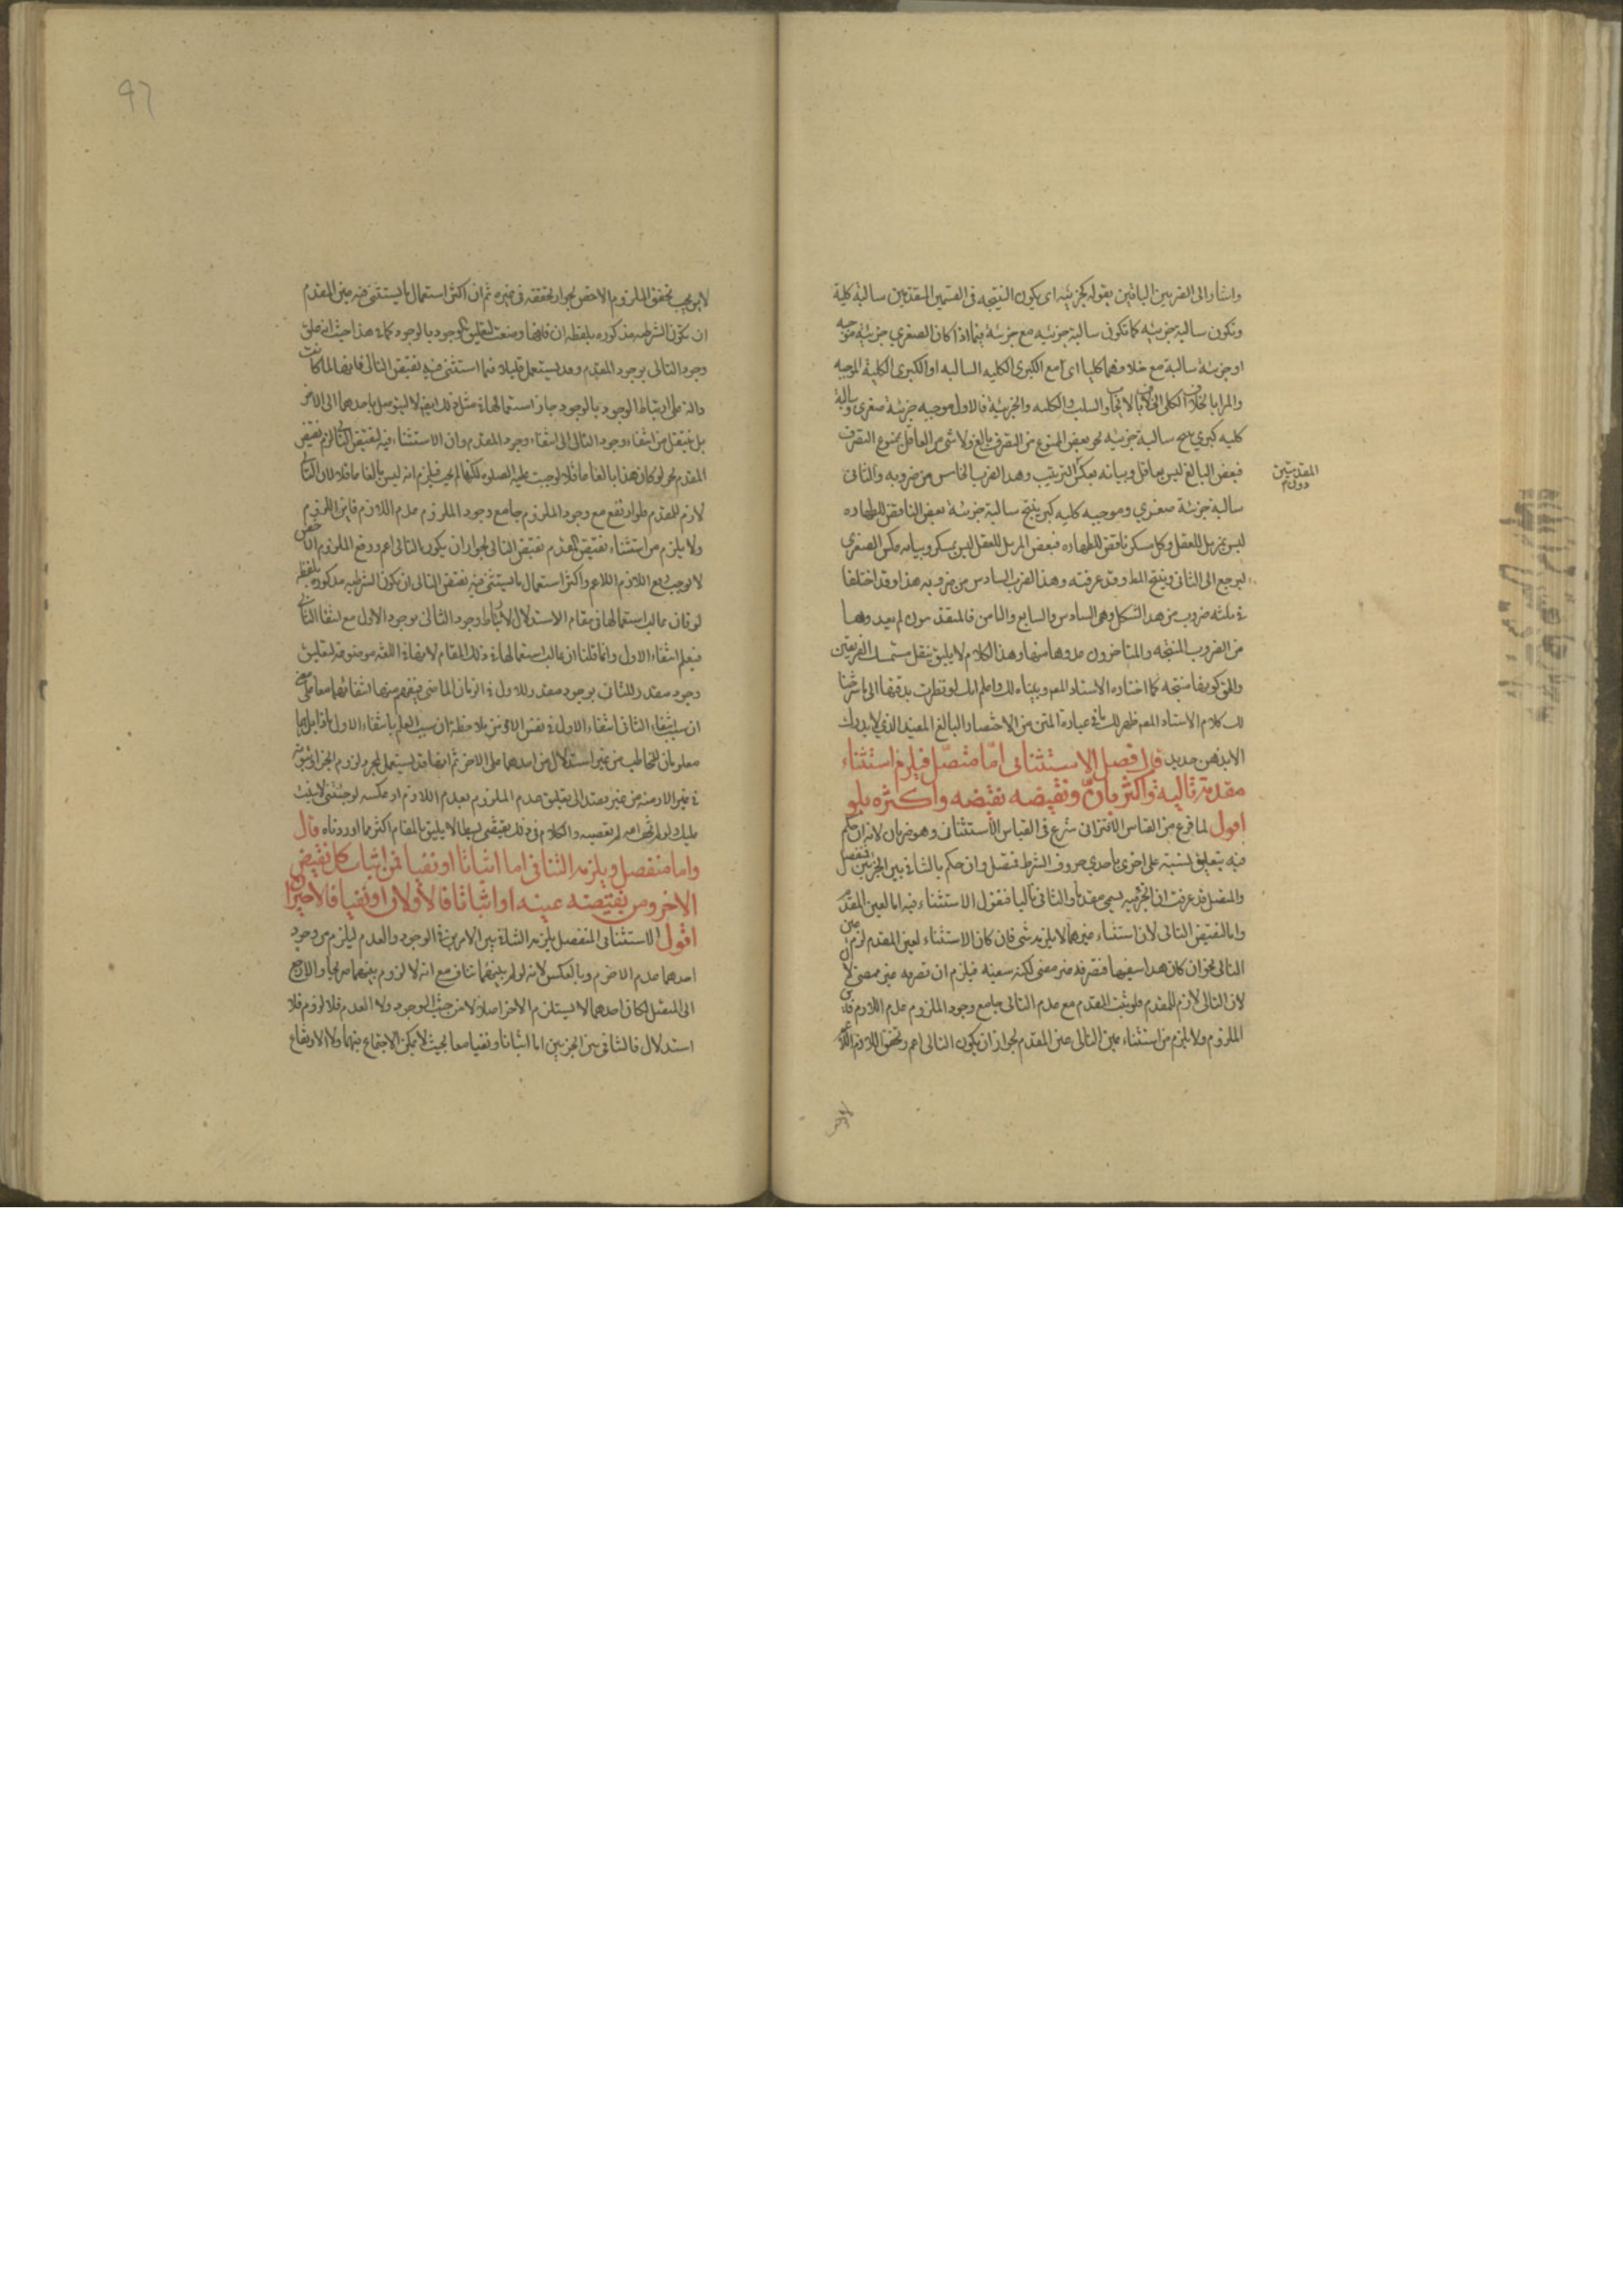 واشار الى الضربين الباقيين بقوله كجزئيه اى يكون النتيجه فى القسمين المقدمين سالبة كلية
وتكون سالبة جزئيه كما تكون سالبة جزئيه مع جزئية فيما اذا كان الصغرى جزئيه موجبه
او جزئية سالبة مع خلافهما كليا اى مع الكبرى الكليه السالبه او الكبرى الكلية الموجبه
والمراد بالخلاف الكلى الخلاف بالايجاب والسلب والكليه والجزئية فالاول موجبه جزئية صغرى وسالبة
كليه كبرى ينتج سالبة جزئيه نحو بعض الممنوع من التصرف بالغ ولا شئ من العاقل بممنوع التصرف
فبعض البالغ ليس بعاقل وبيانه بعكس الترتيب وهذا الضرب الخامس من ضروبه والثانى
المقدمتين
دون م
سالبة جزئية صغرى وموجبه كليه كبرى ينتج سالبة جزئية بعض الناقض للطهاره
ليس بمزيل للعقل وكل مسكر ناقض للطهاره فبعض المزيل للعقل ليس بمسكر وبيانه بعكس الصغرى
ليرجع الى الثانى وينتج المط وقد عرفته وهذا الضرب السادس من ضروبه هذا وقد اختلفا
فى ثلثه ضروب من هذا الشكل وهى السادس والسابع والثامن فالمتقدمون لم يعدوها
من الضروب المنتجه والمتاخرون عدوها منها وهذا الكلام لا يليق بنقل متمسك الفريقين
والحق كونها منتجه كما اختاره الاستاد المص وبيناه لك واعلم انك لو نظرت بدقتها الى ما شرحنا
لك كلام الاستاد المص ظهر لك ما فى عبارة المتن من الاختصار البالغ المفيد الذى لا يدرك
الا بذهن حديد قال فصل الاستثنائى اما متصل فيلزم استثناء
مقدمة تاليه واكثر بان ونقيضه نقيضه واكثره بلو
اقول لما فرغ من القياس الاقترانى شرع فى القياس الاستثنائى وهو ضربان لانه ان حكم
فيه بتعليق نسبته على اخرى باحدى حروف الشرط فمتصل وان حكم بالتنافى بين الجزئين فمنفصل
والمتصل قد عرفت ان الجزء فيه يسمى مقدما والثانى تاليا فنقول الاستثناء فيه اما لعين المقدم
واما لنقيض التالى لان استثناء غيرهما لا يلزمه شئ فان كان الاستثناء لعين المقدم لزم عين
التالى نحو ان كان هذا سفيها فتصرفه غير ممضى لكنه سفيه فيلزم ان تصرفه غير ممضى
لان التالى لازم للمقدم فلو ثبت المقدم مع عدم التالى جامع وجود الملزوم عدم اللازم
الملزوم ولا يلزم من استثناء عين التالى عين المقدم لجواز ان يكون التالى اعم وتحقق اللازم
لا يوجب تحقق الملزوم الاخص لجواز تحققه فى غيره ثم ان اكثر استعمال ما يستثنى فيه عين المقدم
ان تكون الشرطيه مذكوره بلفظه ان فانها وضعت لتعليق الوجود بالوجود كما فى هذا حيث انه علق
وجود التالى بوجود المقدم وقد يستعمل قليلا فيما استثنى فيه نقيض التالى فانها لما كانت
دالة على ارتباط الوجود بالوجود جاز استعمالها فى مثل ذلك ايضا لا ليتوسل باحدهما الى الاخر
بل لينتقل من انتفاء وجود التالى الى انتفاء وجود المقدم وان الاستثناء فيه لنقيض التالى لزم نقيض
المقدم نحو لو كان هذا بالغا عاقلا لوجبت عليه الصلوه لكنها لم تجب فيلزم انه ليس بالغا عاقلا لان التالى
لازم للمقدم فلو ارتفع مع وجود الملزوم جامع وجود الملزوم عدم اللازم فاين اللزوم
ولا يلزم من استثناء نقيض المقدم نقيض التالى لجواز ان يكون التالى اعم ورفع الملزوم الاخص
لا يوجب رفع اللازم الاعم واكثر استعمال ما يستثنى فيه نقيض التالى ان تكون الشرطيه مذكوره بلفظه
لو فان غالب استعمالها فى مقام الاستدلال لارتباط وجود الثانى بوجود الاول مع انتفا الثانى
فيعلم انتفاء الاول وانما قلنا ان غالب استعمالها فى ذلك المقام لانها فى اللغه موضوعه لتعليق
وجود مقدر للثانى بوجود مقدر للاول فى الزمان الماضى فيفهم منها انتفائهما معا على معنى
ان سبب انتفاء الثانى انتفاء الاول فى نفس الامر من غير ملاحظة ان سبب العلم بانتفاء الاول ماذا بل هما
معلومان للمخاطب من غير استدلال من احدهما على الاخر ثم انها قد يستعمل لمجرد لزوم الجزاء وثبوته
فى جميع الازمنه من غير قصد الى تعليق عدم الملزوم بعدم اللازم او عكسه لو جئتنى لاثنيت
عليك ولو لم يخف الله لم يعصيه والكلام فى ذلك يقتضى بسطا لا يليق بالمقام اكثر مما اوردناه قال
واما منفصل ويلزمه التنافى اما اثباتا او نفيا فمن اثبات كل نقيض
الاخر ومن نقيضه عينه او اثباتا فالاولان او نفيا فالاخيران
اقول الاستثنائى المنفصل يلزمه التنافى بين الامرين فى الوجود والعدم ليلزم من وجود
احدهما عدم الاخر وبالعكس لانه لو لم بينهما تناف مع انه لا لزوم بينهما صريحا والا رجع
الى المتصل لكان احدهما لا يستلزم الاخر اصلا لا من حيث الوجود ولا العدم فلا لزوم فلا
استدلال فالتنافى بين الجزئين اما اثباتا ونفيا معا بحيث لا يمكن الاجتماع بينهما ولا الارتفاع